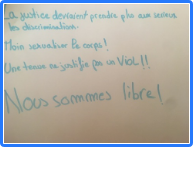 La justice devraient prendre plus aux serieux
les discrimination.
Moin sexualiser le corps!
Une tenue ne justifie pas un Viol!!
Nous sommes libre!